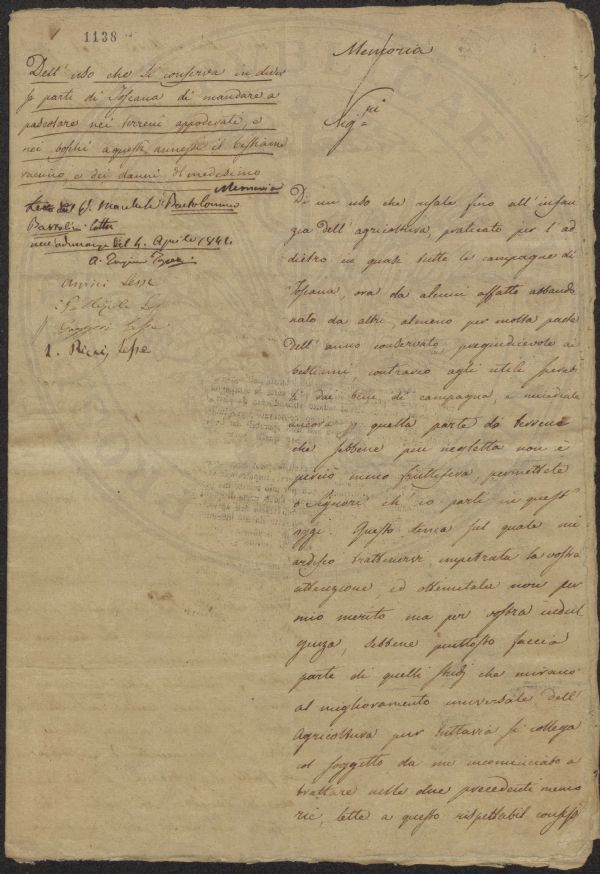 1138
Dell' uso che si conserva in diver
se parti di Toscana di mandare a
pascolare nei terreni appoderati, e
nei boschi a questi annessi il bestiame
vaccino, e dei danni del medesimo
Memoria
del Sr. Bartolommeo
letta
nell'adunanza del 4. Aprile 1841.
Amici lesse
lesse
lesse
1. Ricci, lesse
Memoria
Sig.ri
Di un uso che risale fino all' infan
zia dell' agricoltura, praticato per l' ad
dietro in quasi tutte le campagne di
Toscana, ora da alcuni affatto abbando
nato da altri, almeno per molta parte
dell' anno conservato, pregiudicevole ai
bestiami, contrario agli utili
di campagna, e micidiale
ancora p quella parte di terreno
che sebbene più negletta non è
perciò meno fruttifera, permettete
o Signori ch' io parli in quest'
oggi. Questo tema sul quale mi
ardisco trattenervi impetrata la vostra
attenzione ed ottenutala non per
mio merito ma per vostra indul
genza, sebbene piuttosto faccia
parte di quelli studj che mirano
al miglioramento universale dell'
Agricoltura pur tuttavia si collega
col soggetto da me incominciato a
trattare nelle due precedenti memo
rie, lette a questo rispettabil consesso